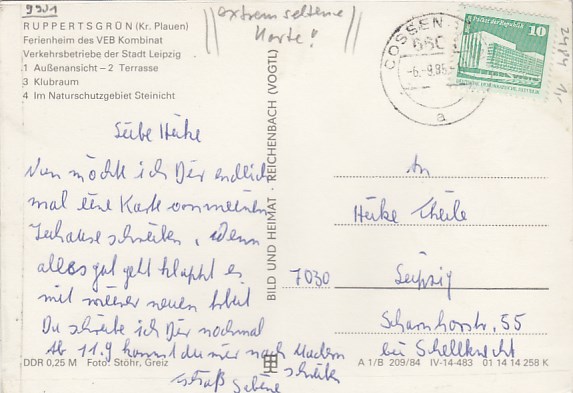 9901
RUPPERTSGRÜN (Kr. Plauen)
Ferienheim des VEB Kombinat
Verkehrsbetriebe der Stadt Leipzig
1 Außenansicht – 2 Terrasse
3 Klubraum
4 Im Naturschutzgebiet Steinicht
extrem seltene
Karte!
COSSEN
-6.-9.85
a
10
DDR
Liebe Heike
Nun möcht ich Dir endlich
mal eine Karte von meinen
Zuhause schreiben. Wenn
alles gut geht klappt es
mit meiner neuen Arbeit
Du schreibe ich Dir nochmal
Ab 11.9 kannst du mir nach
schreiben
BILD UND HEIMAT · REICHENBACH (VOGTL)
An
Heike Theile
7030 Leipzig
Scharnhorstr. 55
bei Schellknecht
DDR 0,25 M Foto: Stöhr, Greiz
A 1/B 209/84 IV-14-483 01 14 14 258 K